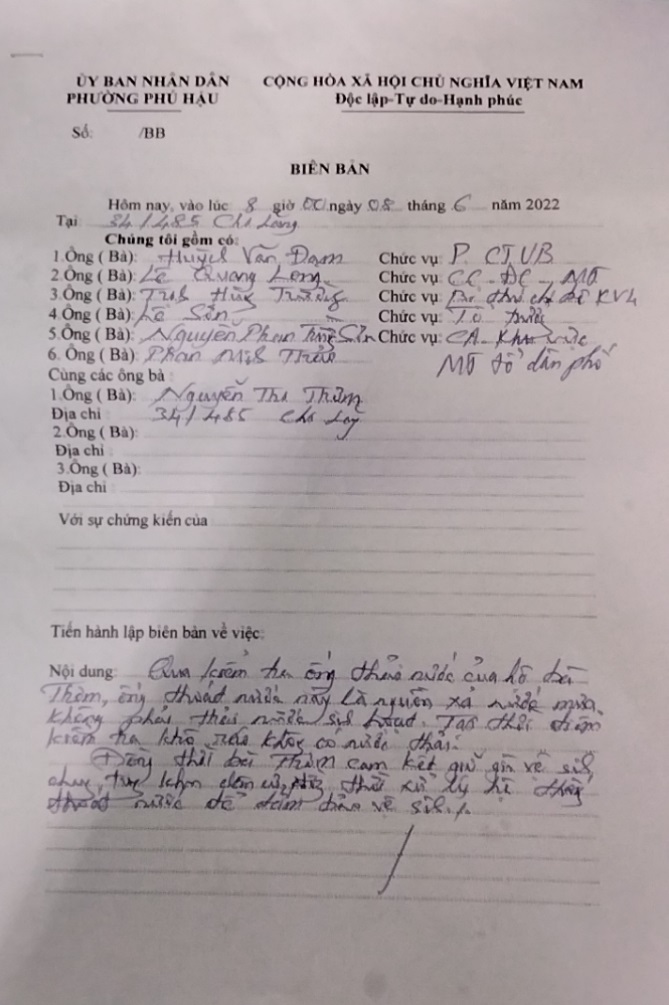 ỦY BAN NHÂN DÂN CỘNG HÒA XÃ HỘI CHỦ NGHĨA VIỆT NAM
PHƯỜNG PHÚ HẬU Độc lập-Tự do-Hạnh phúc
Số: /BB
BIÊN BẢN
Hôm nay, vào lúc 8 giờ 00 ngày 08 tháng 6 năm 2022
Tại 34/485 Chi Lăng
Chúng tôi gồm có:
1.Ông ( Bà): Huỳnh Văn Chức vụ: P. CTUB
2.Ông ( Bà): Lê Quang Long Chức vụ: CC - ĐC - MT
3.Ông ( Bà): Hùng Chức vụ: thư chi bộ KV4
4.Ông ( Bà): Lê Sơn Chức vụ: Tổ trưởng
5.Ông ( Bà): Nguyễn Phan Chức vụ: CA. Khu vực
6. Ông ( Bà): Phan Minh MT tổ dân phố
Cùng các ông bà :
1.Ông ( Bà): Nguyễn Thị Thơm
Địa chỉ : 34/485 Chi Lăng
2.Ông ( Bà):
Địa chỉ :
3.Ông ( Bà):
Địa chỉ :
Với sự chứng kiến của
Tiến hành lập biên bản về việc:
Nội dung: Qua kiểm tra ống thoát nước của hộ bà
Thơm, ống thoát nước này là nguồn xả nước mưa
không phải thải nước sinh hoạt. Tại thời điểm
kiểm tra khô ráo không có nước thải.
Đồng thời bà Thơm cam kết giữ gìn vệ sinh
chung, thời xử lý hệ thống
thoát nước để đảm bảo vệ sinh./.